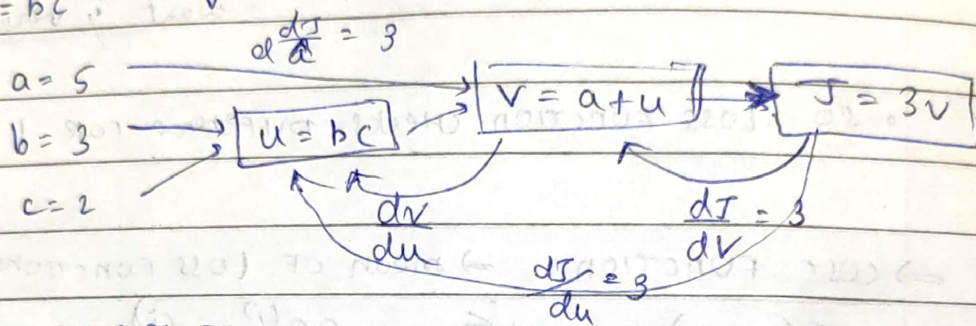 = bc
dJ/da = 3
a = 5
b = 3
c = 2
u = bc
v = a + u
J = 3v
dv/du
dJ/dv = 3
dJ/du = 3